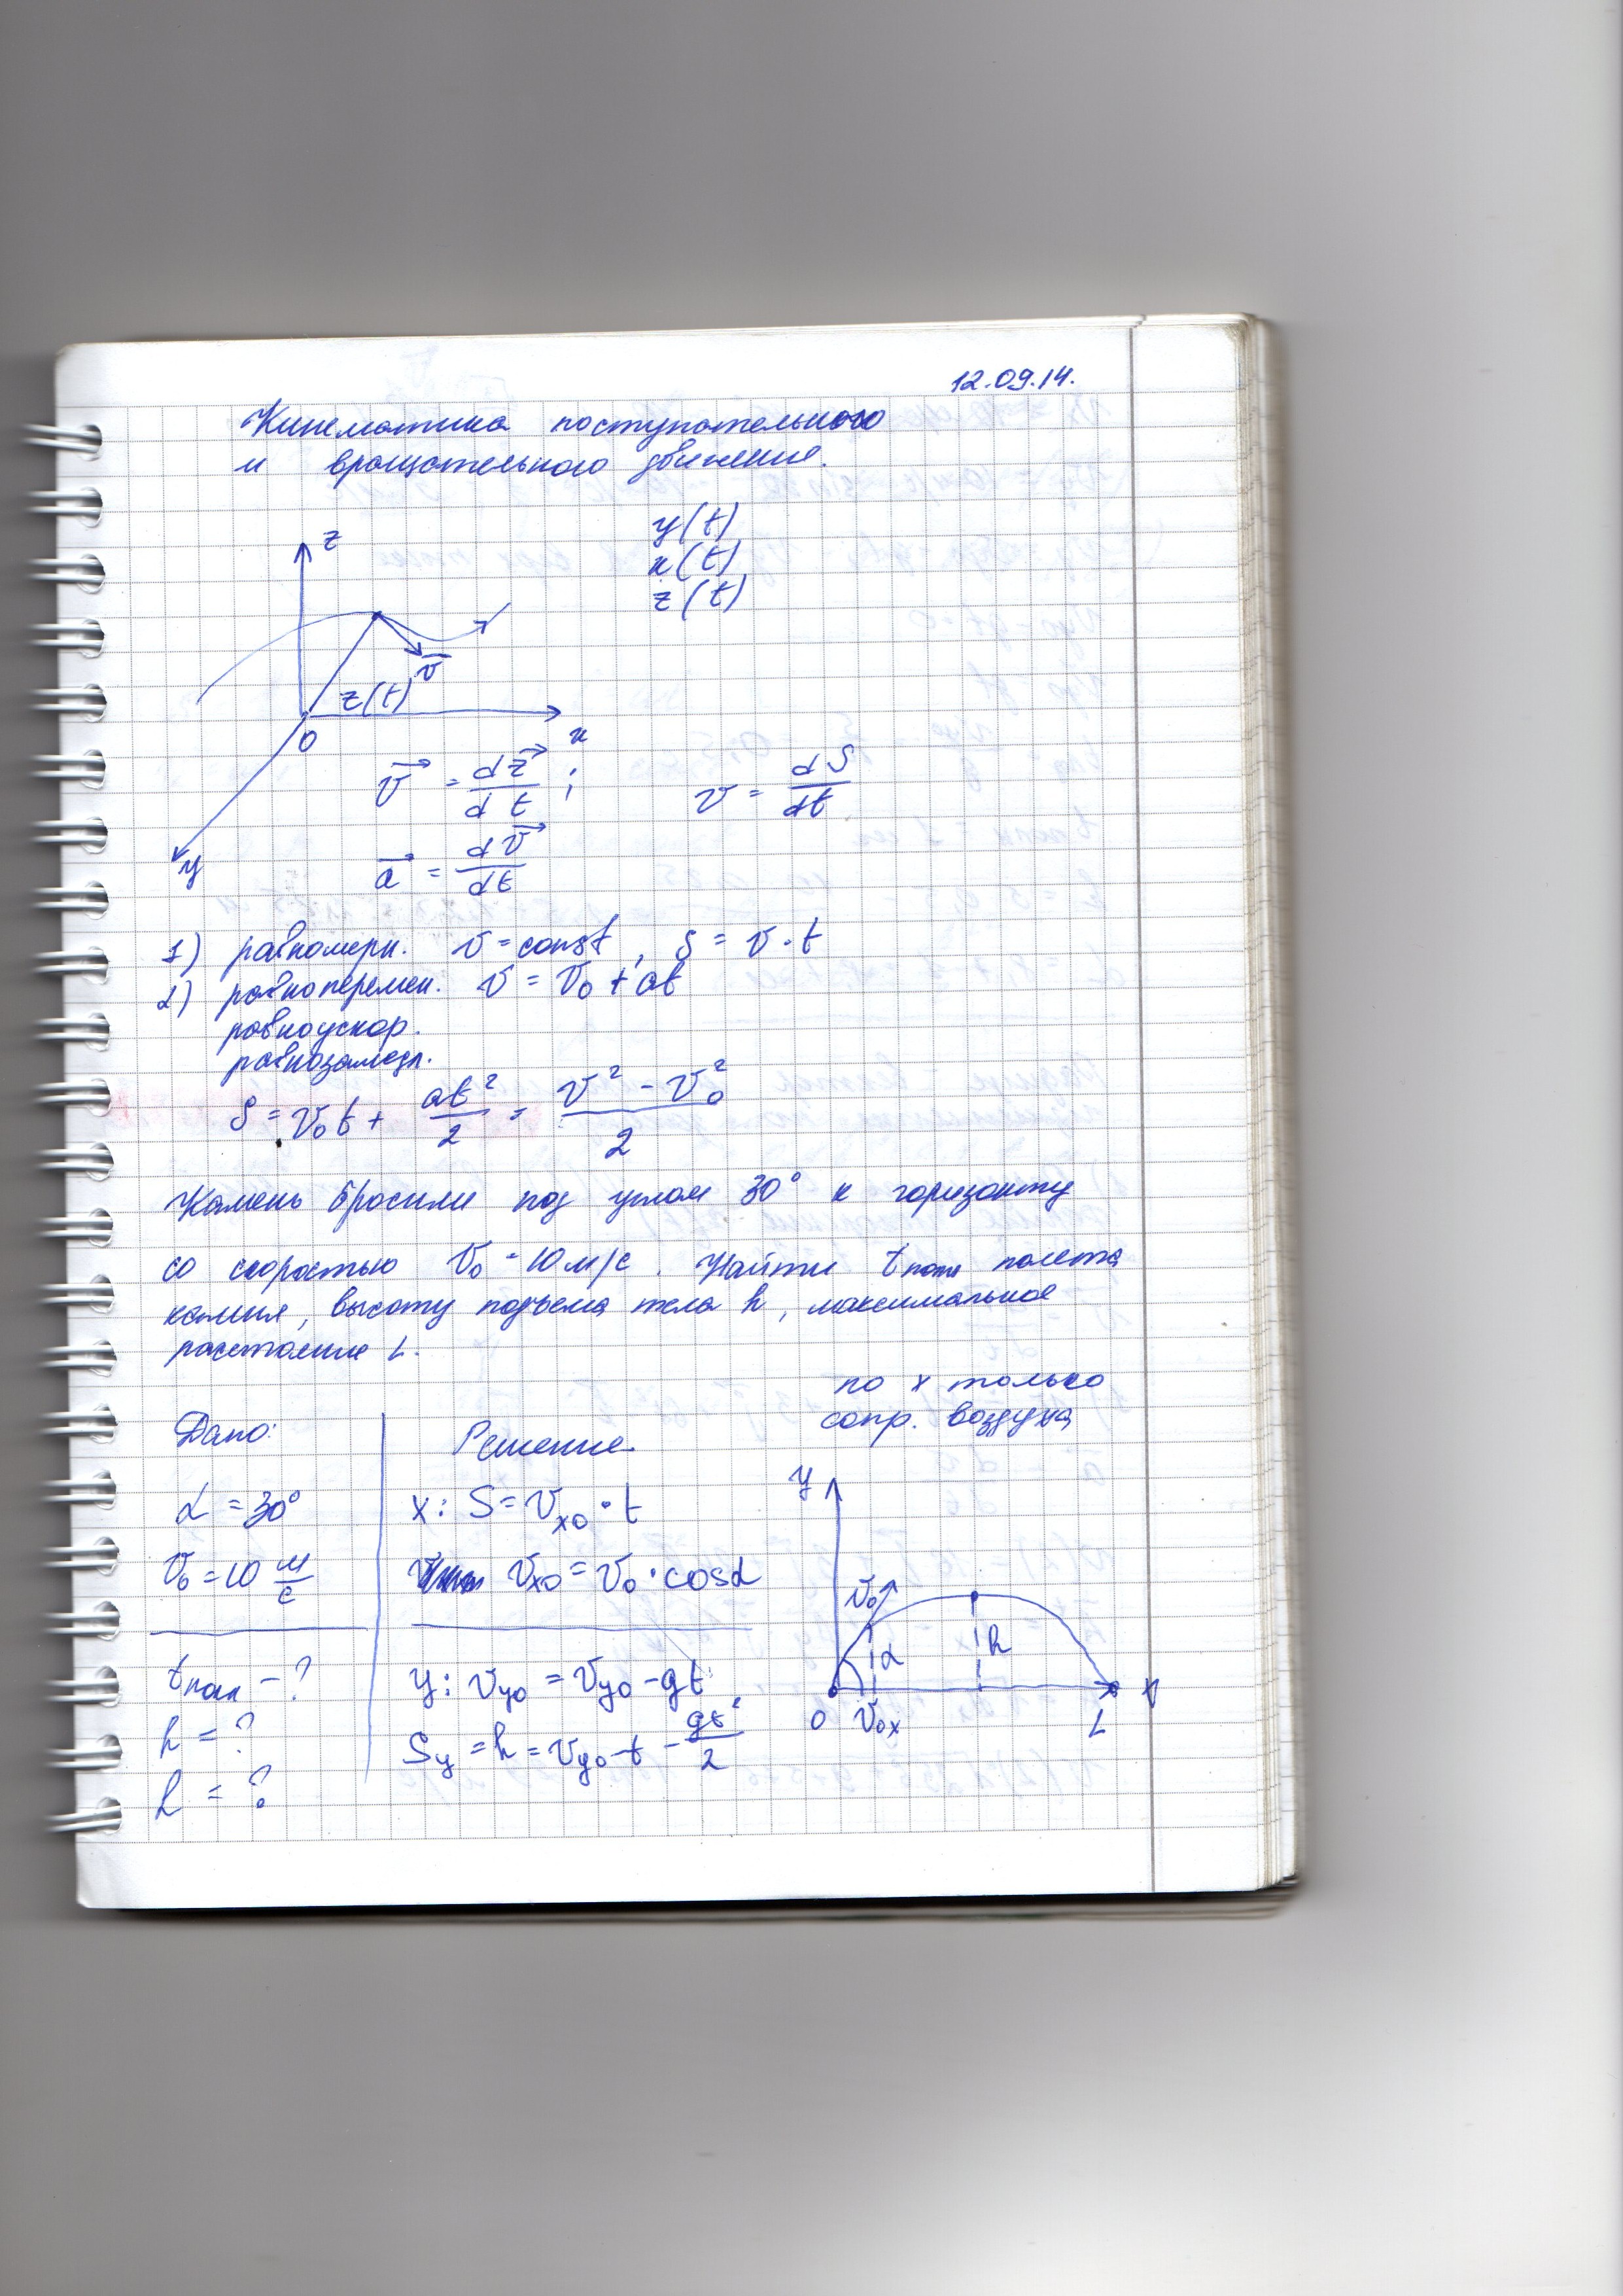 12.09.14.
Кинематика поступательного
и вращательного движения.
z
y(t)
x(t)
z(t)
v̅
z(t)
0
x
y
v⃗ = dz⃗/dt ; v = dS/dt
a⃗ = dv⃗/dt
1) равномерн. v = const, S = v · t
2) равноперемен. v = v₀ + at
равноускор.
равнозамедл.
S = v₀t + at²/2 = v² - v₀²/2
Камень бросили под углом 30° к горизонту
со скоростью v₀ = 10 м/с. Найти tпол полета
камня, высоту подъема тела h, максимальное
расстояние L.
по x только
сопр. воздуха
Дано:
Решение
α = 30°
x: S = vₓ₀ · t
v₀ = 10 м/с
vₓ₀ = v₀ · cosα
tпол - ?
y: vy₀ = vy₀ - gt
h = ?
Sy = h = vy₀ t - gt²/2
L = ?
y
v₀
α
h
0
v₀ₓ
L